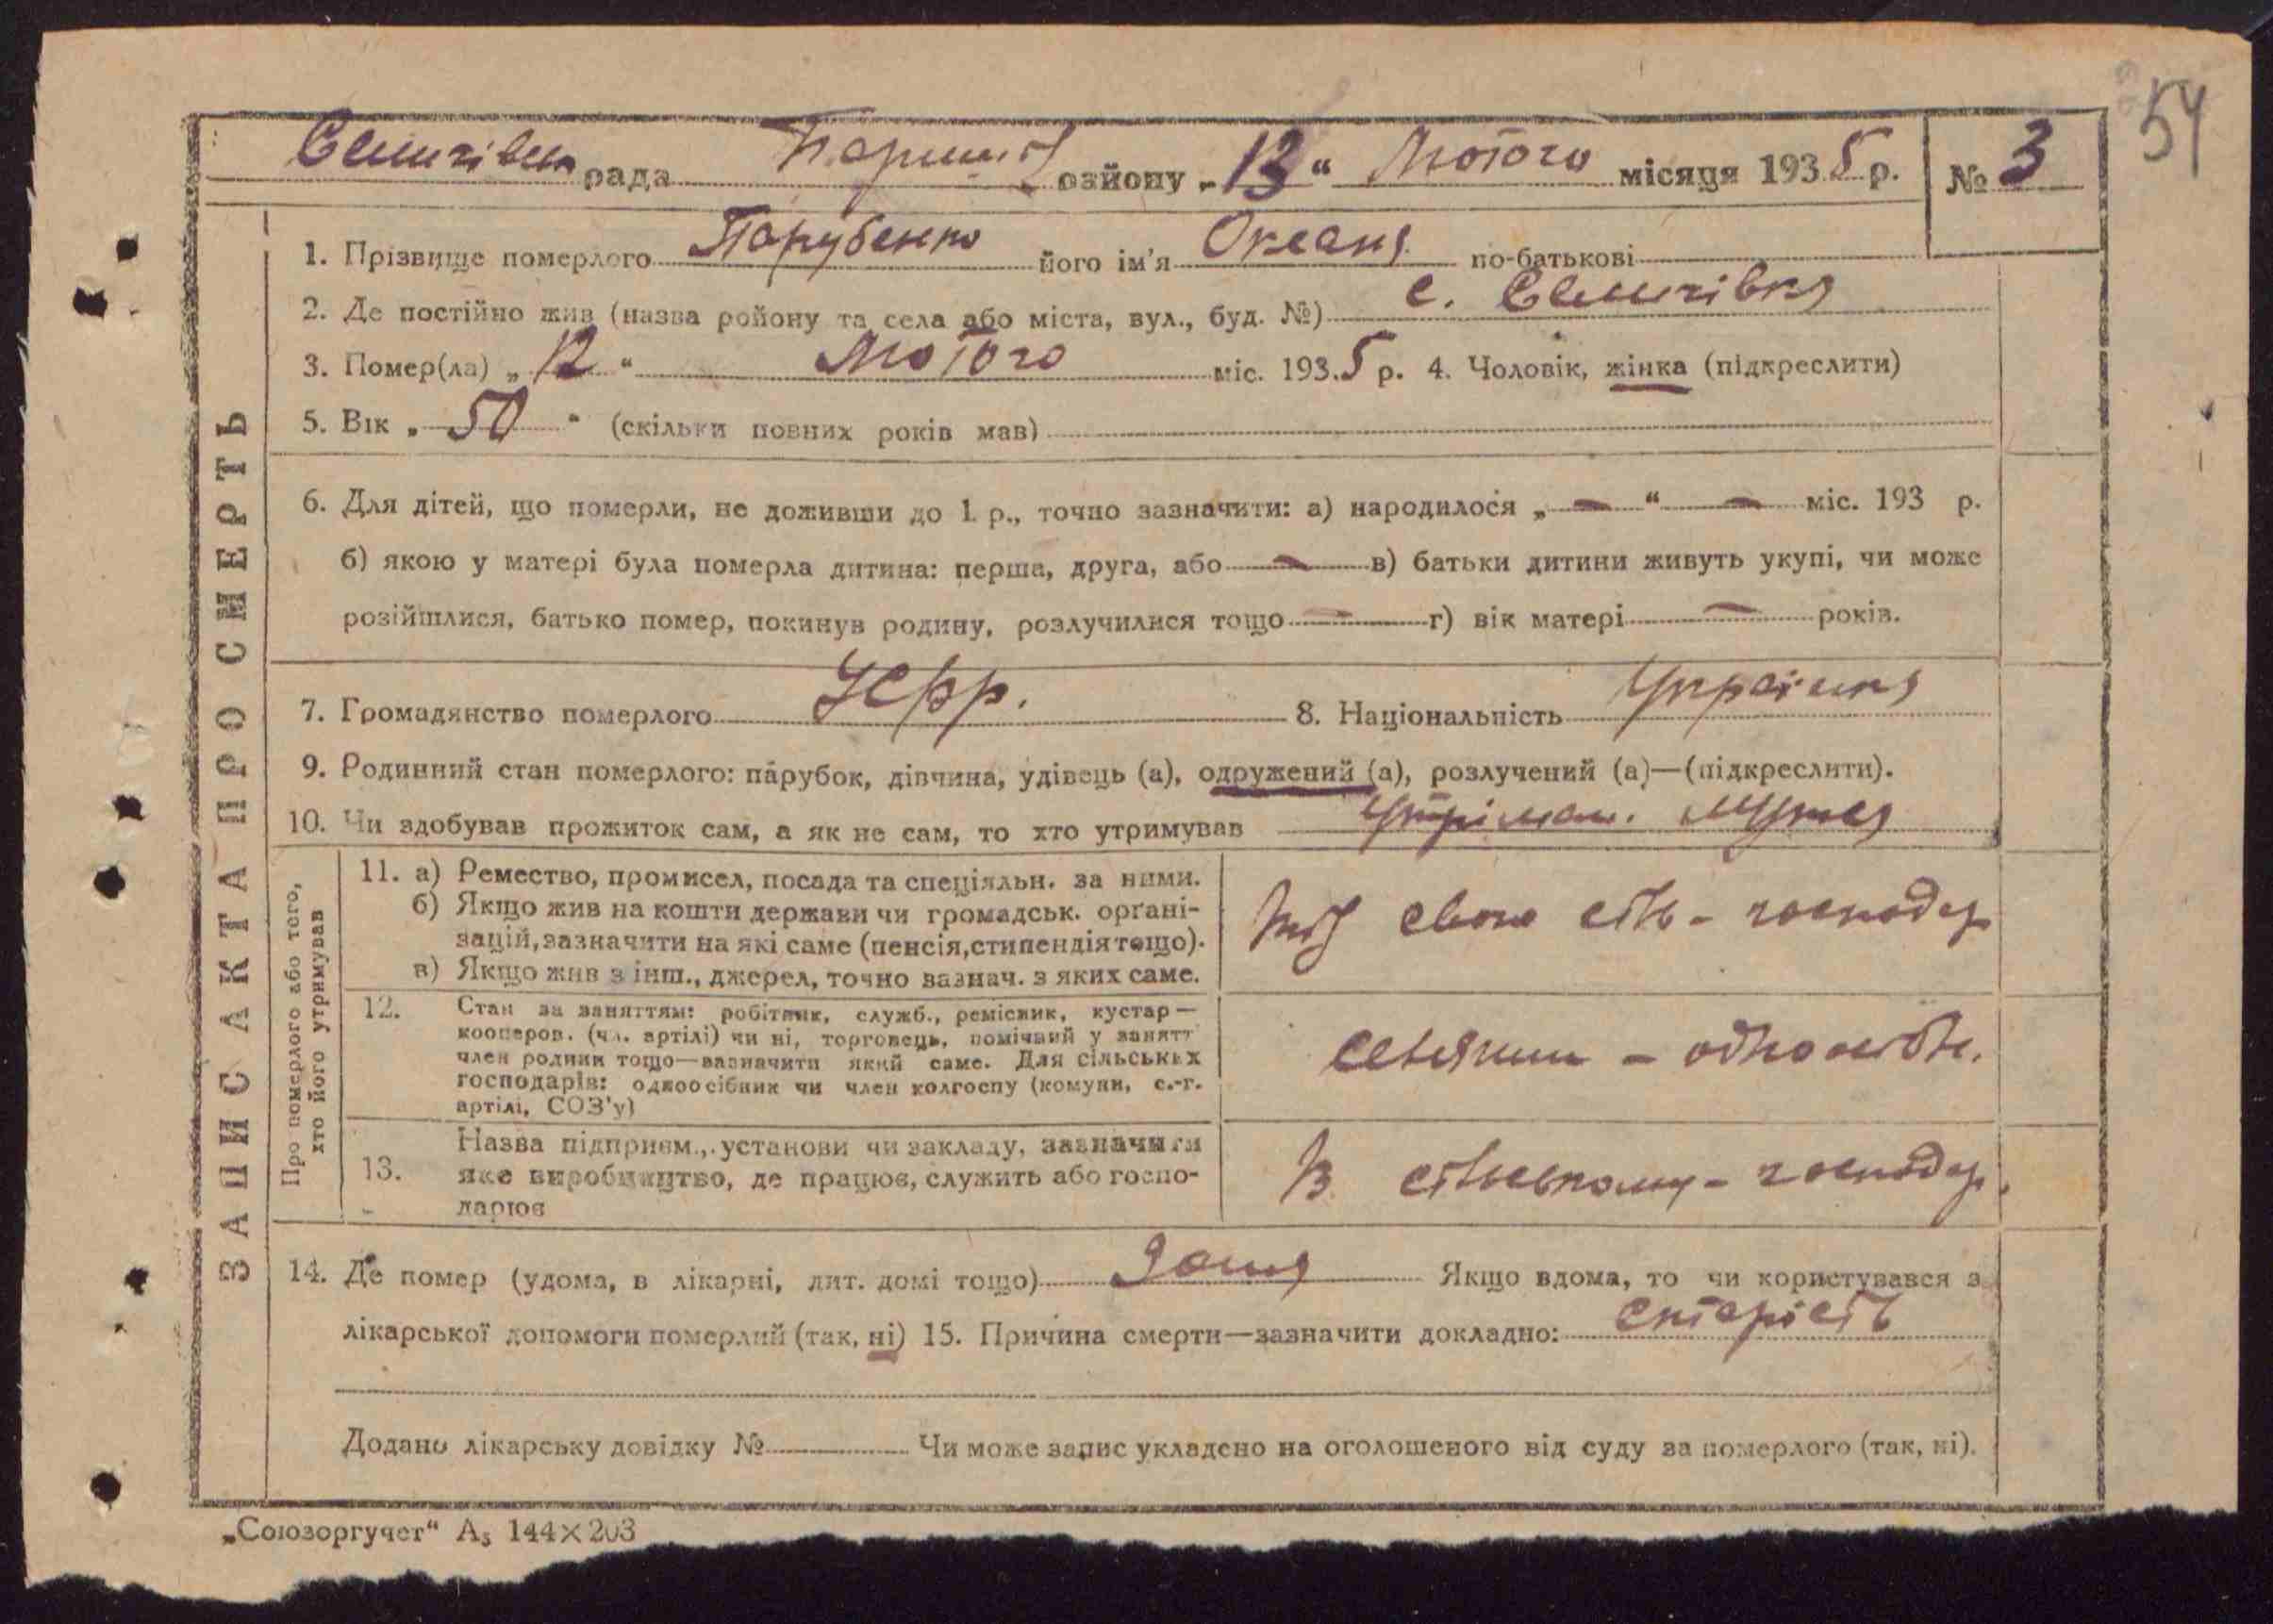 54
рада району „13“ Лютого місяця 1935 р. № 3
ЗАПИС АКТА ПРО СМЕРТЬ
1. Прізвище померлого Парубенко його ім'я Оксана по-батькові
2. Де постійно жив (назва ройону та села або міста, вул., буд. №) с.
3. Помер(ла) „12“ Лютого міс. 1935 р. 4. Чоловік, жінка (підкреслити)
5. Вік „50“ (скільки повних років мав)
6. Для дітей, що померли, не доживши до 1 р., точно зазначити: а) народилося „—“ — міс. 193 р.
б) якою у матері була померла дитина: перша, друга, або — в) батьки дитини живуть укупі, чи може
розійшлися, батько помер, покинув родину, розлучилися тощо — г) вік матері — років.
7. Громадянство померлого УСРР. 8. Національність Українка
9. Родинний стан померлого: парубок, дівчина, удівець (а), одружений (а), розлучений (а)—(підкреслити).
10. Чи здобував прожиток сам, а як не сам, то хто утримував Утріман. Мужа
Про померлого або того,
хто його утримував
11. а) Ремество, промисел, посада та спеціяльн. за ними.
б) Якщо жив на кошти держави чи громадськ. орґані-
зацій, зазначити на які саме (пенсія, стипендія тощо).
в) Якщо жив з інш., джерел, точно зазнач. з яких саме.
свого сіль - господар
12. Стан за заняттям: робітник, служб., ремісник, кустар—
кооперов. (чл. артілі) чи ні, торговець, помічний у занятт
член родини тощо—зазначити який саме. Для сільських
господарів: одноосібник чи член колгоспу (комуни, с.-г.
артілі, СОЗ'у)
селянин - одноосібн.
13. Назва підприєм., установи чи закладу, зазначити
яке виробництво, де працює, служить або госпо-
дарює
В сільському - господар.
14. Де помер (удома, в лікарні, лит. домі тощо) Дома Якщо вдома, то чи користувався з
лікарської допомоги померлий (так, ні) 15. Причина смерти—зазначити докладно: старість
Додано лікарську довідку № Чи може запис укладено на оголошеного від суду за померлого (так, ні).
„Союзоргучет“ А₅ 144×203